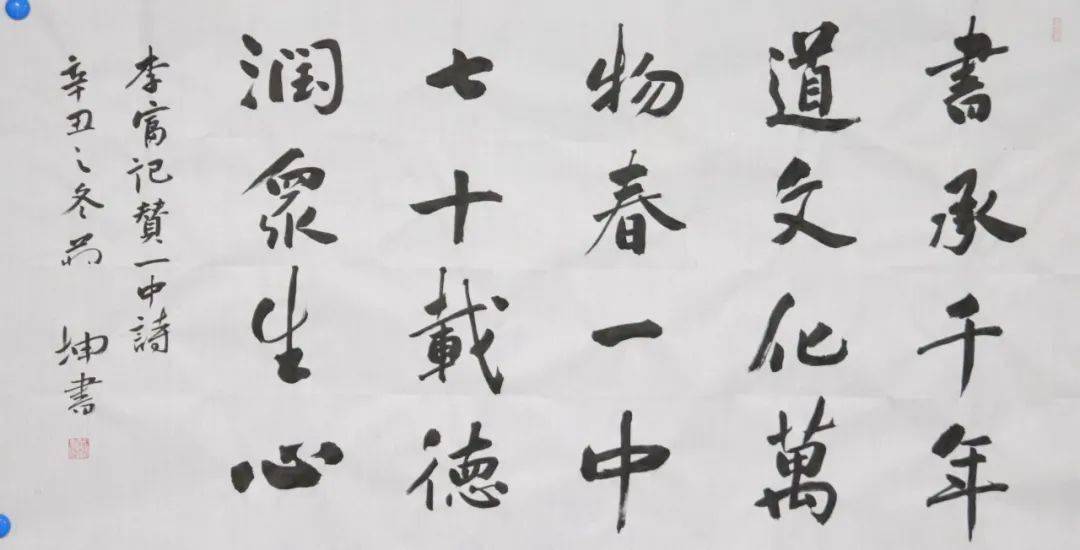 書承千年
道文化萬
物春一中
七十載德
潤眾生心
李富记赞一中詩
辛丑之冬 坤書